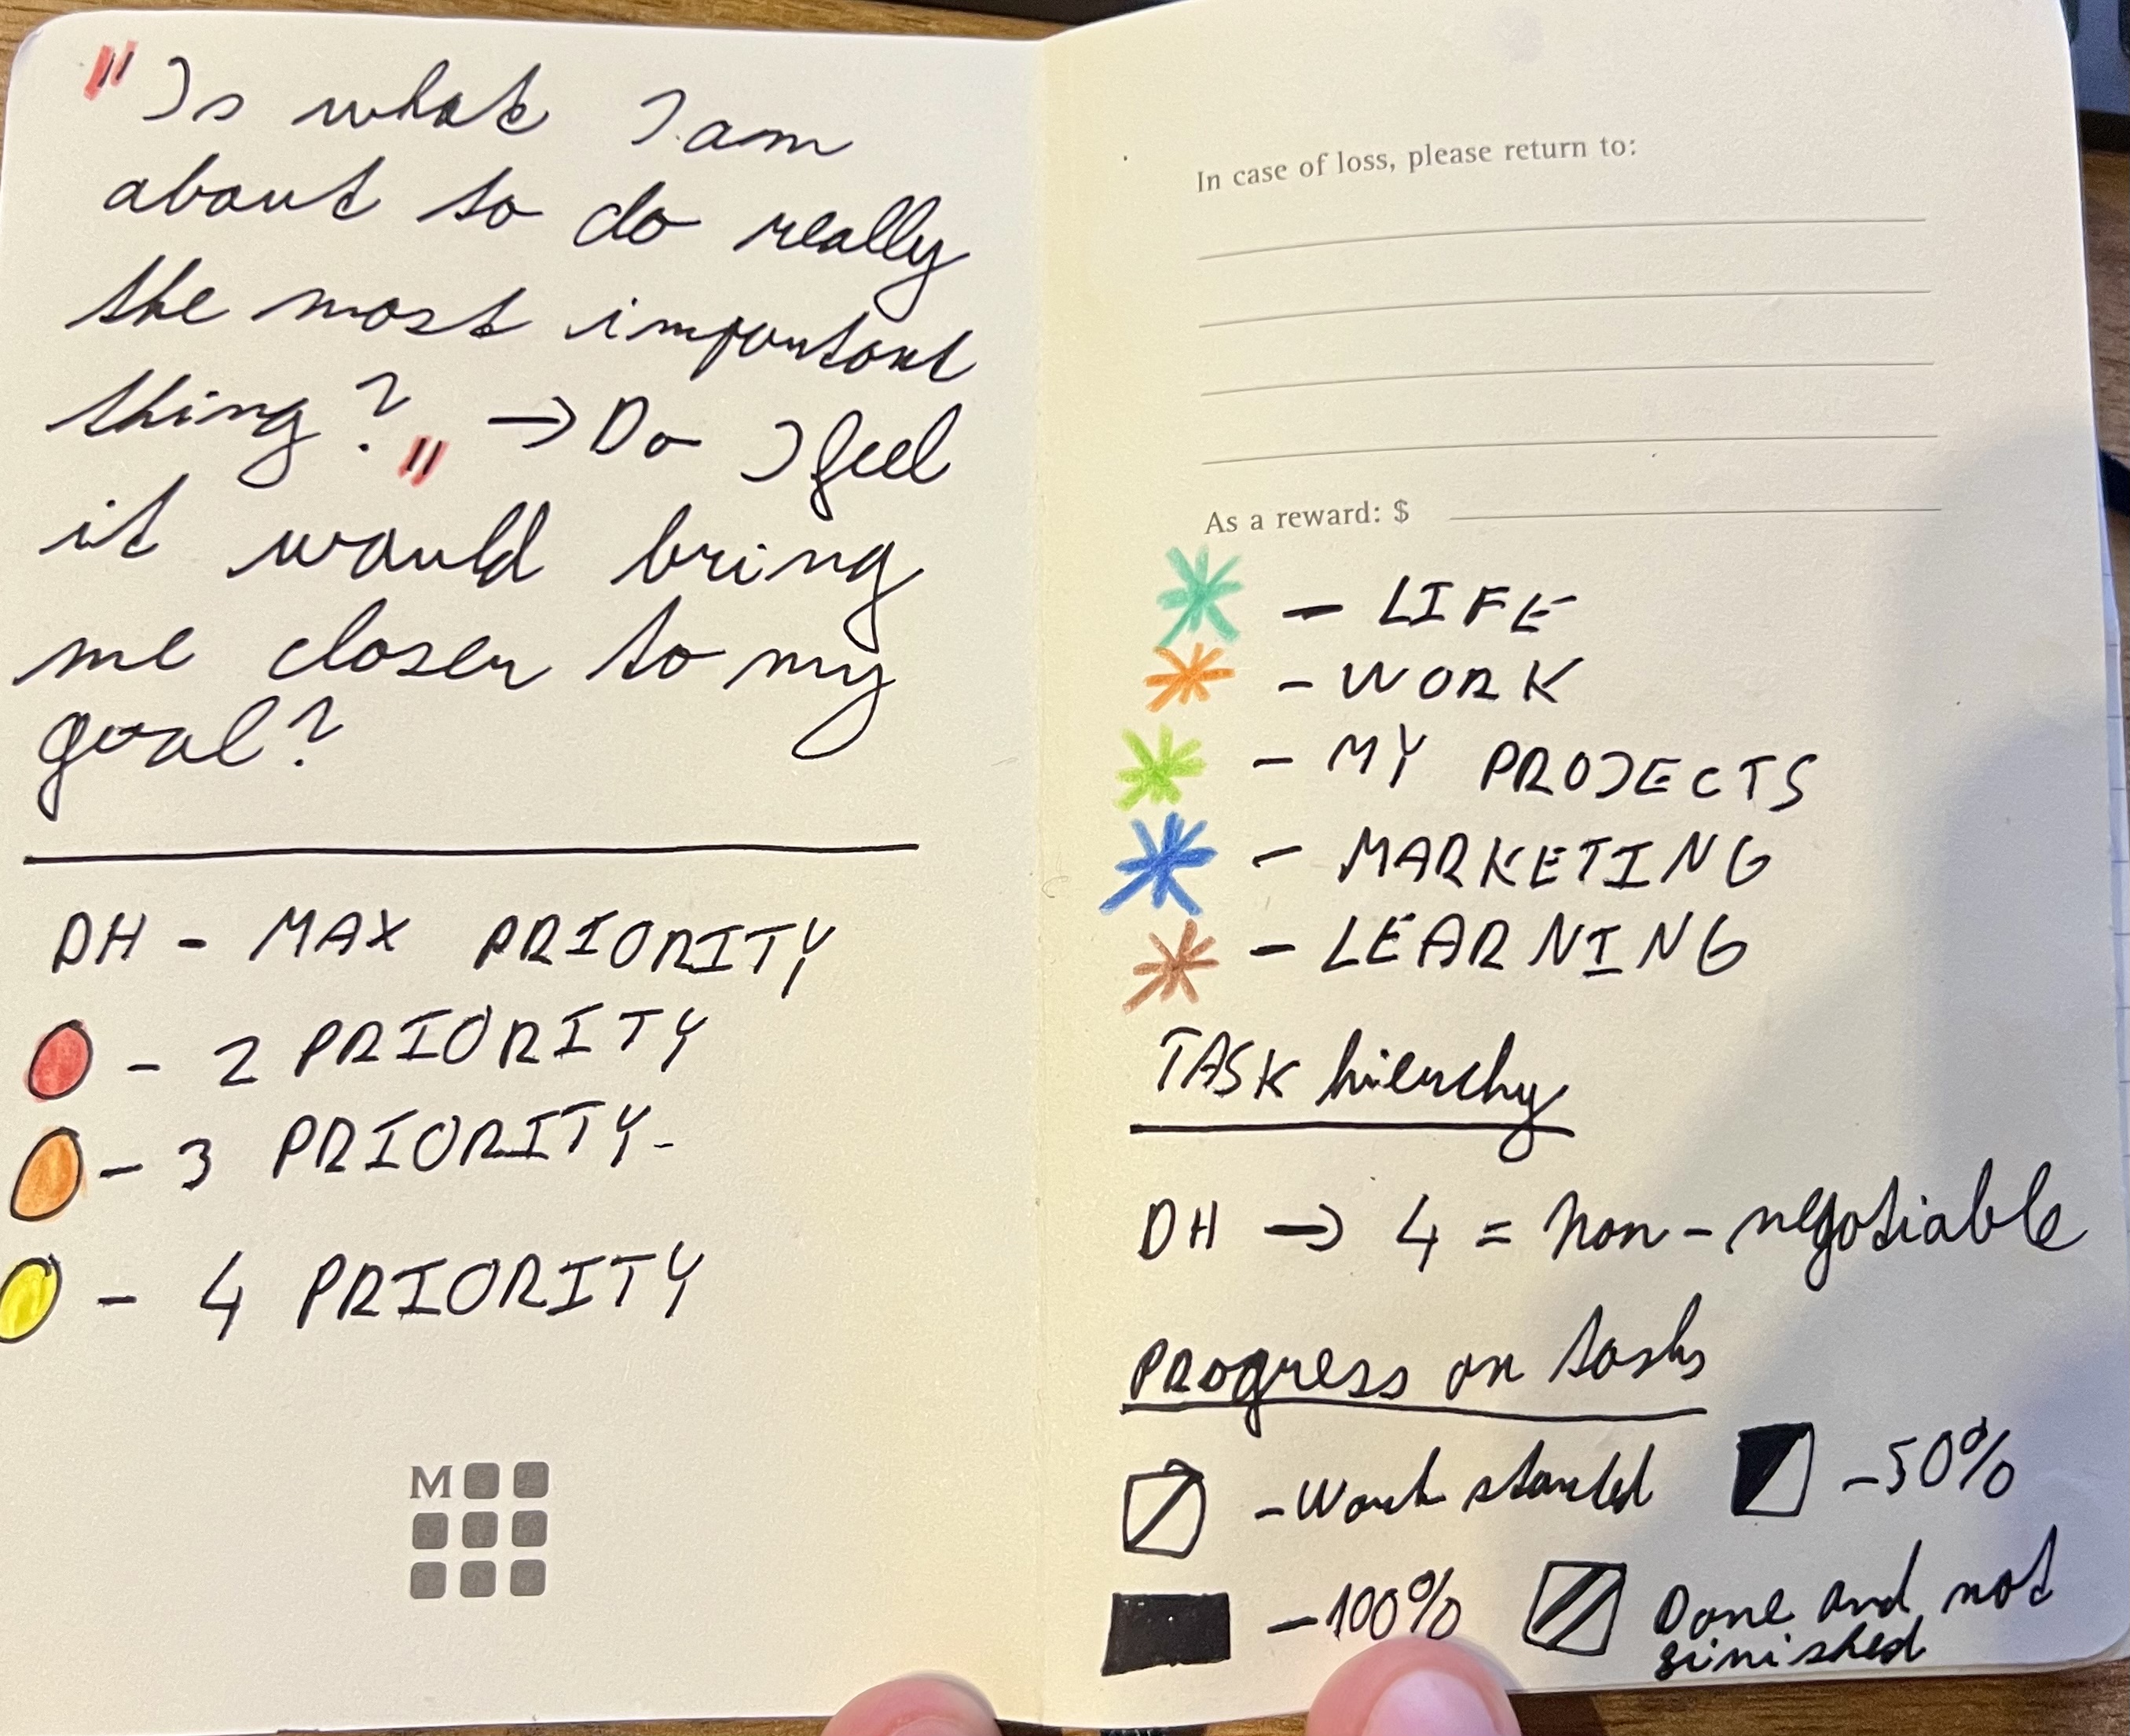 "Is what I am
about to do really
the most important
thing?" → Do I feel
it would bring
me closer to my
goal?
DH - MAX PRIORITY
- 2 PRIORITY
- 3 PRIORITY-
- 4 PRIORITY
M
In case of loss, please return to:
As a reward: $
- LIFE
- WORK
- MY PROJECTS
- MARKETING
- LEARNING
TASK hierchy
DH → 4 = non-negotiable
PROgress on tasks
- Work started
- 50%
- 100%
Done and not
finished